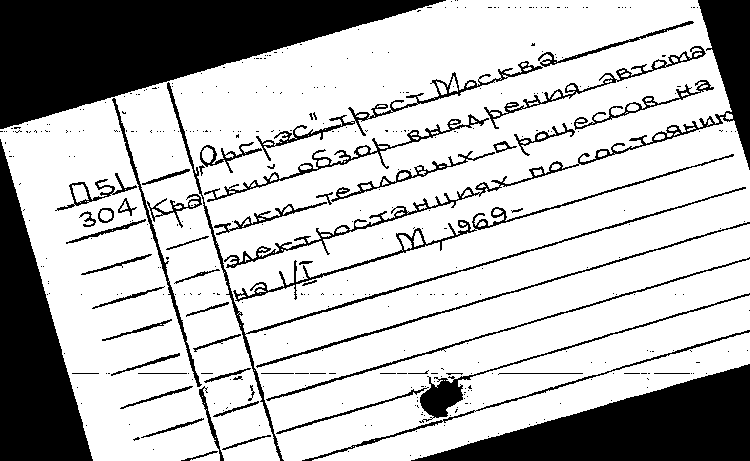 „Оргрэс", трест Москва
П51
304 Краткий обзор внедрения автома-
тики тепловых процессов на
электростанциях по состоянию
на 1/I М, 1969-